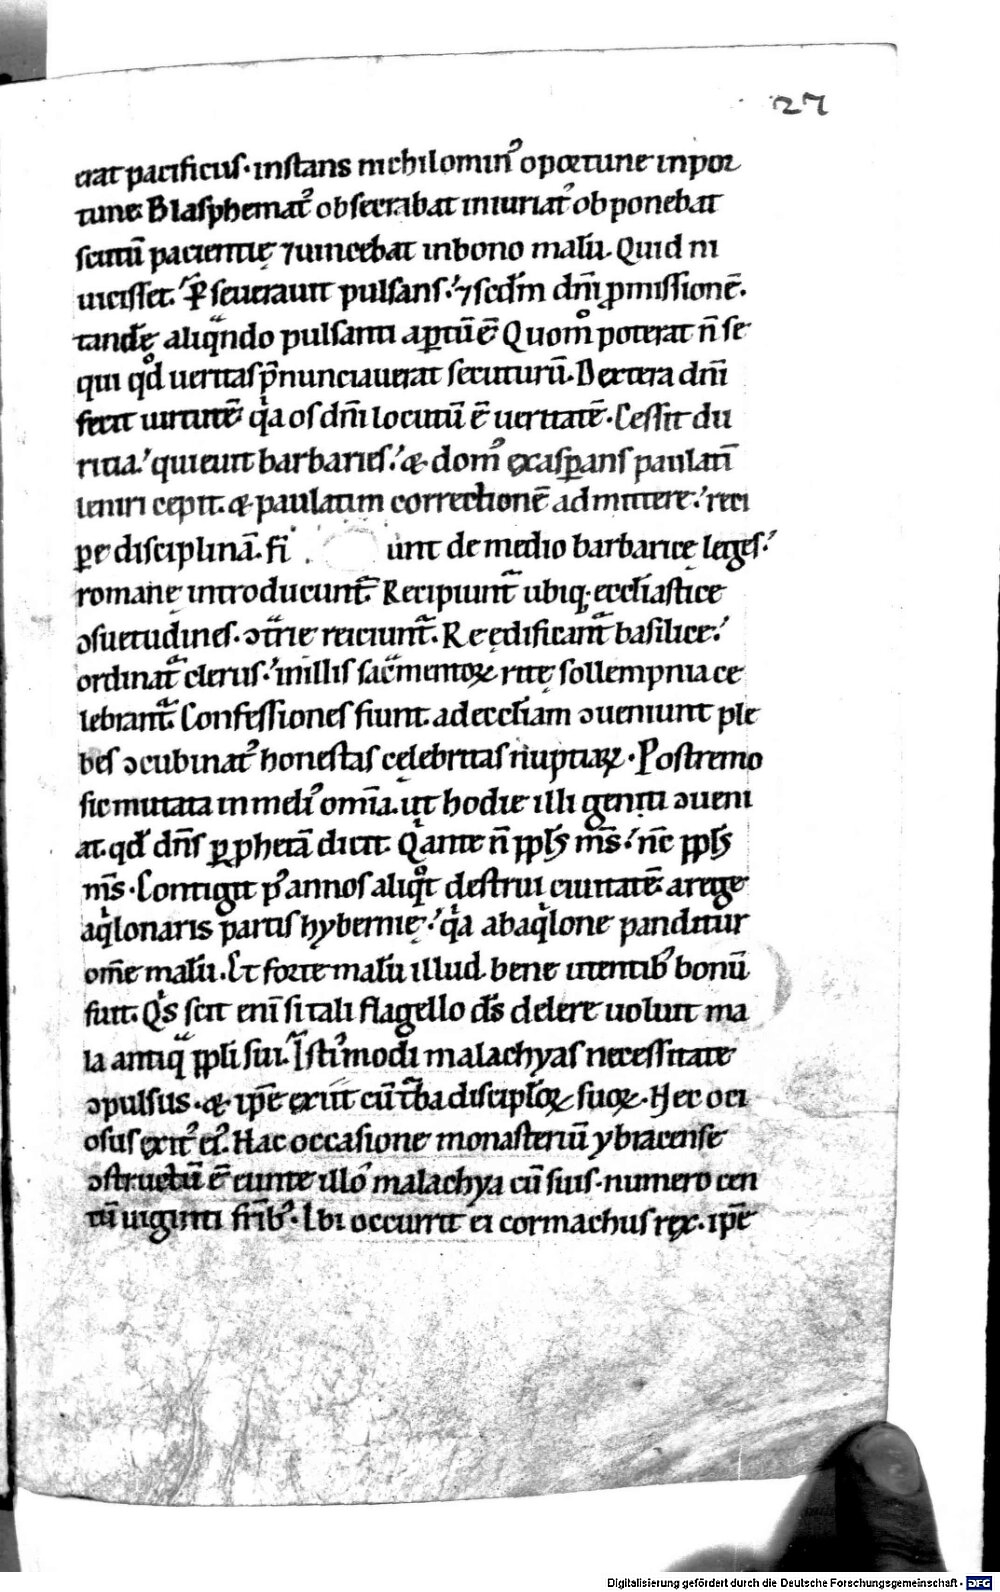 27
erat pacificus. instans nichilomin᾿ oportune inpor
tune. Blasphemat᾿ obsecrabat iniuriat᾿ obponebat
scutū pacientię ⁊ uincebat in bono malū. Quid ni
uicisset. Ꝑseuerauit pulsans. ⁊ scdm̄ dn̄i ꝓmissionē.
tandē aliqͣndo pulsanti aptū ē Quom̊ poterat n̄ se
qui qd̊ ueritas p̄nunciauerat secuturū. Dextera dn̄i
fecit uirtutē qͥa os dn̄i locutū ē ueritatē. Cessit du
ritia. quieuit barbaries. & dom᾿ exasꝑans paulatī
leniri cepit. & paulatim correctionē admittere. reci
pere disciplinā. fi unt de medio barbarice leges.
romane introducunt᷑. Recipiunt᷑ ubiq; ecclīastice
ↄsuetudines. ↄtͣrie reiciunt᷑. Reędificant᷑ basilice.
ordinat᷑ clerus. in illis sac̄mentoꝝ rite sollempnia ce
lebrant᷑. Confessiones fiunt. ad eccłiam ↄueniunt ple
bes ↄcubinat᾿ honestas celebritas nuptiaꝝ. Postremo
sic mutata in meli᾿ om̄ia. ut hodie illi genti ↄueni
at. qd̄ dn̄s ꝑ ꝓphetā dicit. Qͥ ante n̄ ppłs m̄s. nc̄ ppłs
m̄s. Contigit p᾿ annos aliqͦt destrui ciuitatē a rege
aqͥlonaris partis hybernię. qͥa ab aqͥlone panditur
om̄e malū. Et forte malū illud bene utentib᾿ bonū
fuit. Qͥs scit eni᷑ si tali flagello ds̄ delere uoluit ma
la antiqͣ ppłi sui. Isti᾿modi malachyas necessitate
ↄpulsus. & ip̄e exiit cū t᷑ba discipłoꝝ suoꝝ. Nec oci
osus exit᾿ ei᾿. Hac occasione monasteriū ybracense
ↄstructū ē eunte illo᾿ malachya cū suis. numero cen
tū uiginti fr̄ib᾿. Ibi occurrit ei cormachus rex. ip̄e
Digitalisierung gefördert durch die Deutsche Forschungsgemeinschaft - DFG